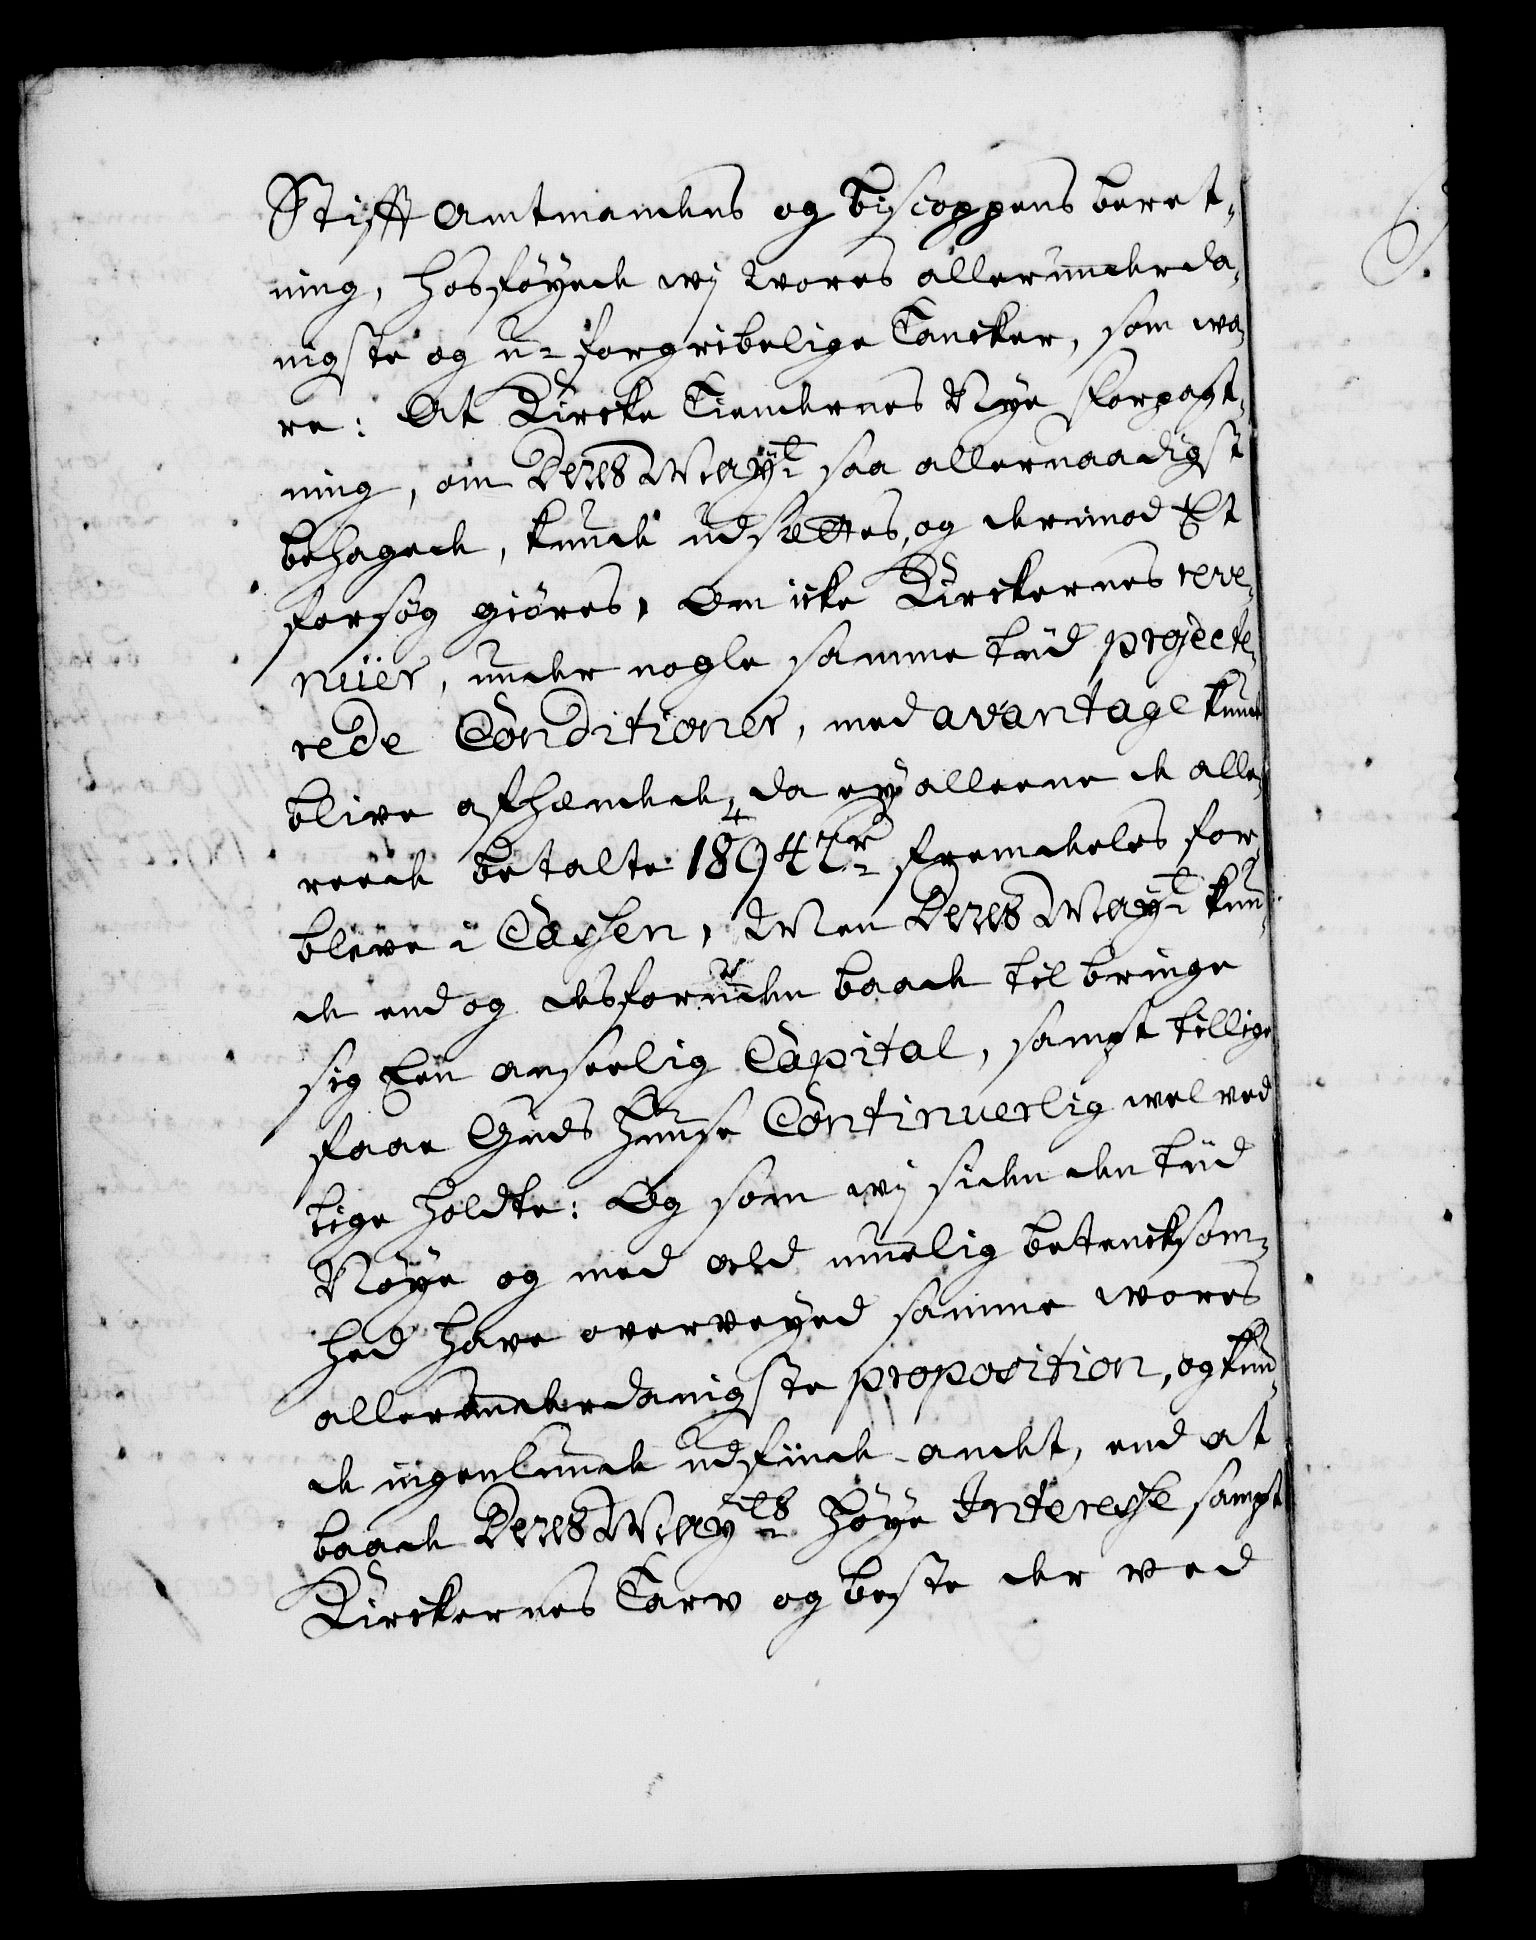 Stifft Amtmandens og Biscoppens beret-
ning, hosføyede wj wores allerunderda-
nigste og u-forgribelige Tancker, som wa-
re: At Kircke Tiendernes Nye forpagt-
ning, om Deres Mayt. saa allernaadigst
behagede, kunde udsættes, og derimod Et
forsøg giøres, Om icke Kirckernes reve-
nüer, under nogle samme tüd projecte-
rede Conditioner, med avantage kunde
blive afhændede, da ey alleene de alle-
reede betalte 1894 r. fremdeles for-
bleve i Cassen, Men Deres Mayt. kun-
de end og desforuden baade tilbringe
sig Een anseelig Capital, sampt tillige
faae Guds Huuse Continuerlig wel ved
lige holdte: Og som wj siden den tüd
Nøye og med ald muelig betencksom-
hed have overveyed samme wores
allerunderdanigste proposition, og kun-
de ingenlunde udfinde andet, end at
baade Deres Mayts. Høye Interesse sampt
Kirckernes Tarv og beste der ved